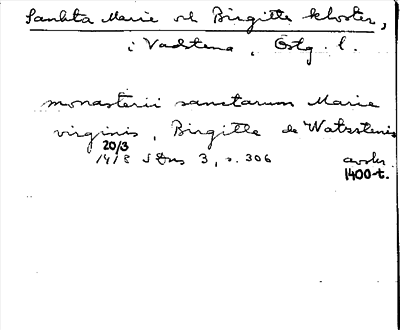 Sankta Marie och Birgitte kloster,
i Vadstena, Östg. l.
monasterii sanctarum Marie
virginis, Birgitte de Watzstenis
20/3
1418 SDns 3, s. 306 avskr.
1400-t.